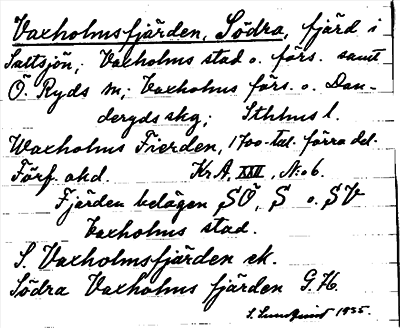 Vaxholmsfjärden, Södra, fjärd i
Saltsjön; Vaxholms stad o. förs. samt
Ö. Ryds sn; Vaxholms förs. o. Dan-
deryds skg; Sthlms l.
Waxholms Fierden, 1700-tal. förra del.
Förf. okd. Kr.A. XXI, N:o 6.
Fjärden belägen SÖ, S o. SV
Vaxholms stad.
S. Vaxholmsfjärden ek.
Södra Vaxholms fjärden G.K.
S. Lundqvist 1935.